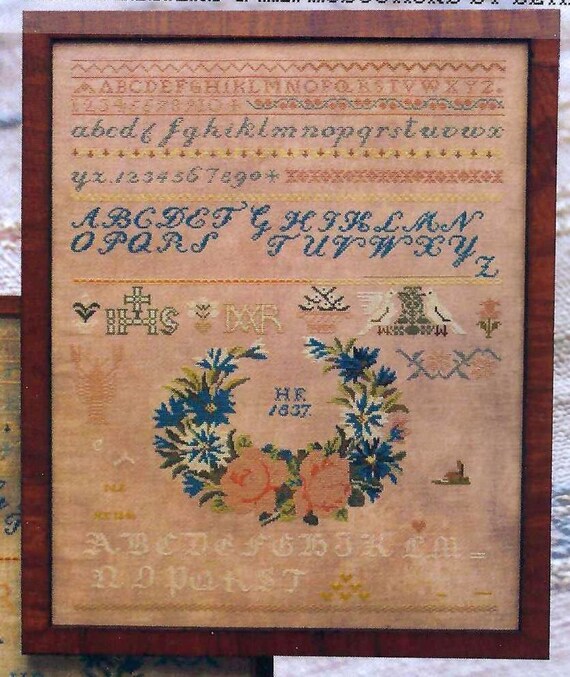 ABCDEFGHIKLMNOPQRSTVWXYZ.
12345678910
abcdefghiklmnopqrstuvwx
yz.1234567890*
ABCDEFGHIKLMN
OPQRS TUVWXYZ
IHS
H.F.
1837.
ABCDEFGHIK LM
NOPQRST